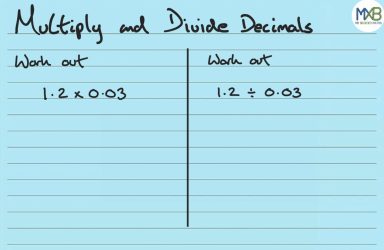 Multiply and Divide Decimals
MXB
Work out
1.2 x 0.03
Work out
1.2 ÷ 0.03